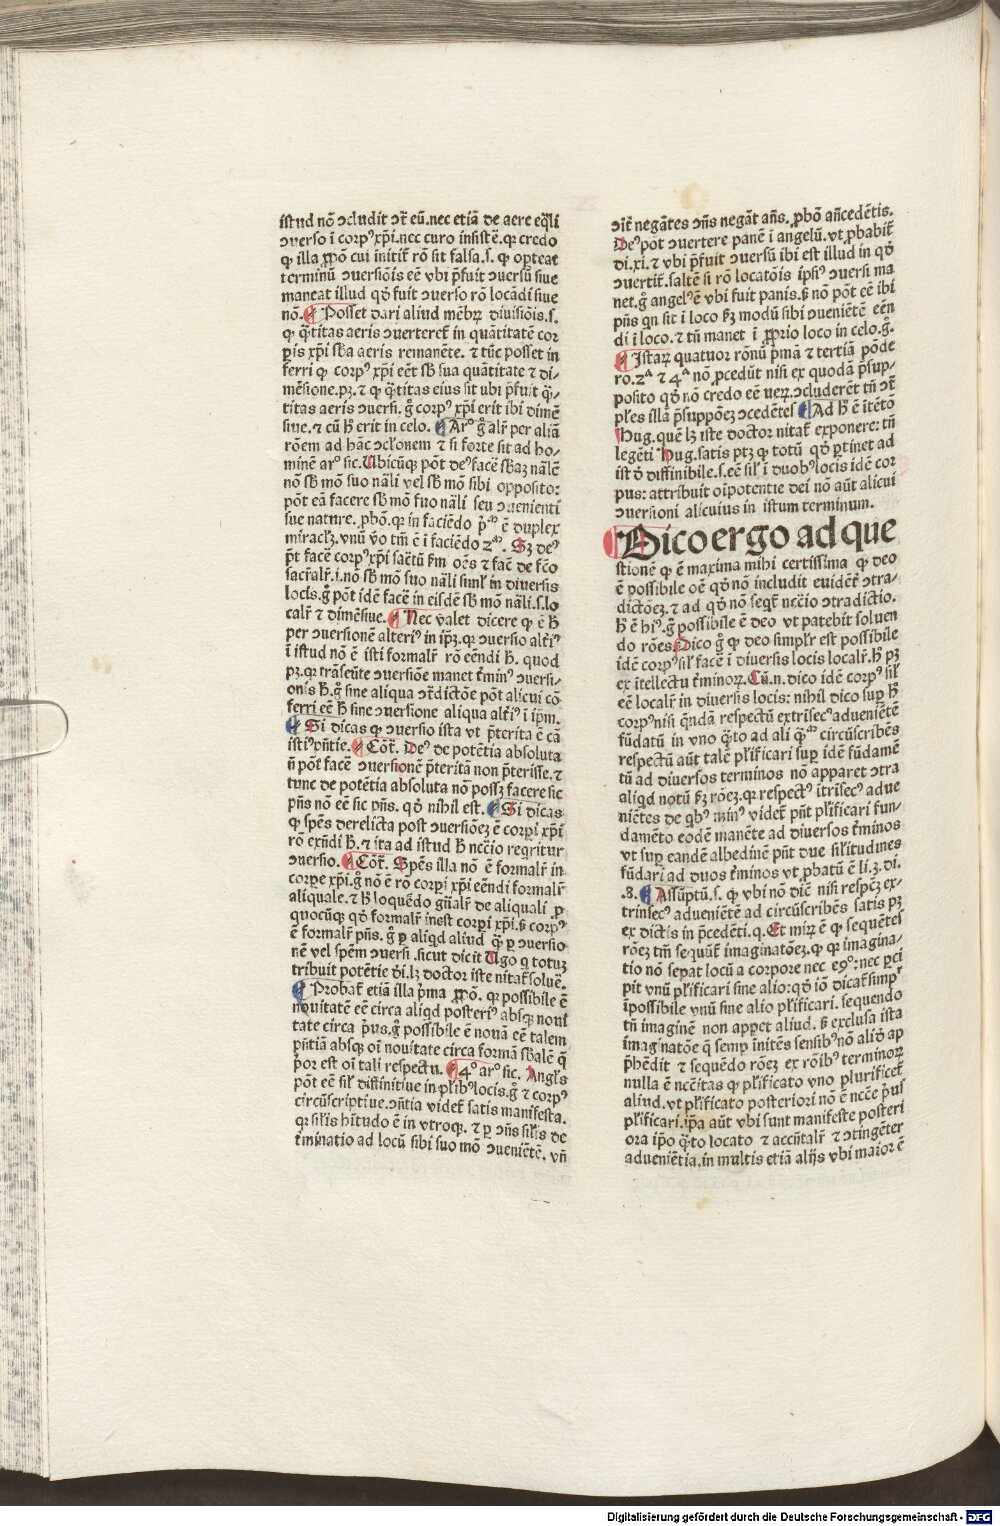 istud nõ ↄcludit ↄt̃ eũ. nec etiã de aere eq̃li
ↄuerso ĩ corpꝰ xp̃i. nec curo insistẽ. qꝛ credo
ꝙ illa ꝓpõ cui initit̃ rõ sit falsa. s. ꝙ opteat
terminũ ↄuersiõis eẽ vbi p̃fuit ↄuersũ siue
maneat illud qđ fuit ↄuerso rõ locãdi siue
nõ. ¶ Posset dari aliud mẽbꝝ diuisiõis. s.
ꝙ q̃titas aeris ↄuerteret̃ in quãtitatẽ cor
ꝑis xp̃i sb̃a aeris remanẽte. ⁊ tũc posset in
ferri ꝙ corpꝰ xp̃i eẽt sb̃ sua quãtitate ⁊ di-
mẽsione. pꝫ. ⁊ ꝙ q̃titas eius sit ubi p̃fuit q̃-
titas aeris ↄuersi. g̊ corpꝰ xp̃i erit ibi dimẽ
siue. ⁊ cũ h̃ erit in celo. ¶ Arº g̊ alr̃ per aliã
rõem ad hãc ↄclonem ⁊ si forte sit ad ho-
minẽ arº sic. Ubicũqꝫ põt deꝰ facẽ sb̃aꝫ nãlẽ
nõ sb̃ mõ suo nãli vel sb̃ mõ sibi opposito:
põt eã facere sb̃ mõ suo nãli seu ↄuenienti
sue nature. ꝓbõ. qꝛ in faciẽdo p̃ᵐ ẽ duplex
miraclꝫ. vnũ v̊o tm̃ ẽ ĩ faciẽdo 2ᵐ. Sꝫ deꝰ
p̃t facẽ corpꝰ xp̃i saẽtũ fm̃ oẽs ⁊ facẽ de fc̃o
sacr̃alr̃. i. nõ sb̃ mõ suo nãli simĩ in diuersis
locis. g̊ põt idẽ facẽ in eisdẽ sb̃ mõ nãli. s. lo
calr̃ ⁊ dimẽsiue. ¶ Nec valet dicere ꝙ ẽ h̃
per ↄuersionẽ alteriꝰ in ip̃ꝫ. qꝛ ↄuersio alt̃iꝰ
ĩ istud nõ ẽ isti formalr̃ rõ eẽndi h̃. quod
pꝫ. qꝛ trãseũte ↄuersiõe manet t̃minꝰ ↄuersi-
onis h̃. g̊ sine aliqua ↄt̃dictõe põt alicui cõ
ferri eẽ h̃ sine ↄuersione aliqua alt̃iꝰ ĩ ip̃m.
¶ Si dicas ꝙ ↄuersio ista vt p̃terita ẽ cã
istiꝰ p̃ntie. ¶ Cõt̃. Deꝰ de potẽtia absoluta
ñ põt facẽ ↄuersionẽ p̃teritã non p̃terisse. ⁊
tunc de potẽtia absoluta nõ possꝫ facere sic
p̃ñs nõ eẽ sic p̃ñs. qđ nihil est. ¶ Si dicas
ꝙ spẽs derelicta post ↄuersiõeꝫ ẽ corpi xp̃i
rõ exñdi h̃. ⁊ ita ad istud h̃ ncc̃io reqritur
ↄuersio. ¶ Cõt̃. Spẽs illa nõ ẽ formalr̃ in
corpe xp̃i. g̊ nõ ẽ rõ corpi xp̃i eẽndi formalr̃
aliquale. ⁊ h̃ loquẽdo gñalr̃ de aliquali ꝓ
quocũqꝫ qđ formalr̃ inest corpi xp̃i. ß corpꝰ
ẽ formalr̃ p̃ñs. g̊ ꝑ aliqd aliud q̃ ꝑ ↄuersio
nẽ vel spẽm ↄuersi. sicut dicit Ugo q totuꝫ
tribuit potẽtie di. lꝫ doctor iste nitat̃ soluẽ.
¶ Probat̃ etiã illa p̃ma ꝓpõ. qꝛ possibile ẽ
nouitatẽ eẽ circa aliqd posteriꝰ absqꝫ noui
tate circa p̃us. g̊ possibile ẽ nouã eẽ talem
p̃ñtiã absqꝫ oĩ nouitate circa formã sb̃alẽ q̃
p̃or est oĩ tali respectu. ¶ 4º arº sic. Angl̃s
põt eẽ sil̃ diffinitiue in pl̃ibꝰ locis. g̊ ⁊ corpꝰ
circũscriptiue. ↄñtia videt̃ satis manifesta.
qꝛ sil̃is hĩtudo ẽ in vtroqꝫ. ⁊ ꝑ ↄñs sil̃is de
t̃minatio ad locũ sibi suo mõ ↄueniẽtẽ. vñ
ↄit̃ negãtes ↄñs negãt añs. ꝓbõ añcedẽtis.
Deꝰ põt ↄuertere panẽ ĩ angelũ. vt ꝓbabit̃
di. xi. ⁊ vbi p̃fuit ↄuersũ ibi est illud in qđ
ↄuertit̃. saltẽ si rõ locatõis ipsiꝰ ↄuersi ma
net. g̊ angelꝰ ẽ vbi fuit panis. ß nõ põt eẽ ibi
p̃ñs qn sit ĩ loco fꝫ modũ sibi ↄueniẽtẽ eẽn
di ĩ loco. ⁊ tñ manet ĩ ꝓprio loco in celo. g̊.
¶ Istaꝝ quatuor rõnũ p̃mã ⁊ tertiã põde
ro. 2ᵃ ⁊ 4ᵃ nõ ꝓcedũt nisi ex quodã p̃sup-
posito qđ nõ credo eẽ ueꝝ. ↄcluderẽt tñ ↄt̃
pl̃es illã p̃suppõeꝫ ↄcedẽtes ¶ Ad h̃ ẽ itẽtõ
Hug. quẽ lꝫ iste doctor nitat̃ exponere: tñ
legẽti Hug. satis ptꝫ ꝙ totũ qđ ꝑtinet ad
ist̊ diffinibile. s. eẽ sil̃ ĩ duobꝰ locis idẽ cor
pus: attribuit oĩpotentie dei nõ aũt alicui
ↄuersioni alicuius in istum terminum.
¶ Dico ergo ad que
stionẽ ꝙ ẽ maxima mihi certissima ꝙ deo
ẽ possibile oẽ qđ nõ includit euidẽt̃ ↄtra-
dictõeꝫ. ⁊ ad qđ nõ seqt̃ ncc̃io ↄtradictio.
h̃ ẽ hiꝰ. g̊ possibile ẽ deo vt patebit soluen
do rões. Dico g̊ ꝙ deo simplr̃ est possibile
idẽ corpꝰ sil̃ facẽ ĩ diuersis locis localr̃. h̃ pꝫ
ex ĩtellectu t̃minoꝝ. Cũ. n. dico idẽ corpꝰ sil̃
eẽ localr̃ in diuersis locis: nihil dico sup h̃
corpꝰ nisi qñdã respectũ extrisecꝰ adueniẽtẽ
fũdatũ in vno q̃to ad ali q̃ᵐ circũscribẽs
respectũ aũt talẽ pl̃ificari sup idẽ fũdamẽ
tũ ad diuersos terminos nõ apparet ↄtra
aliqd notũ fꝫ rõeꝫ. qꝛ respectꝰ ĩtrĩsecꝰ adue
niẽtes de qbꝰ minꝰ videt̃ p̃ñt pl̃ificari fun-
damẽto eodẽ manẽte ad diuersos t̃minos
vt sup eandẽ albedinẽ p̃ñt due sil̃itudines
fũdari ad duos t̃minos vt ꝓbatũ ẽ li. 3. di.
.8. ¶ Assũptũ. s. ꝙ vbi nõ diẽ nisi respc̃ꝫ ex-
trinsecꝰ adueniẽtẽ ad circũscribẽs satis pꝫ
ex dictis in p̃cedẽti. q. Et miꝝ ẽ ꝙ sequẽtes
rõeꝫ tm̃ sequũt̃ imaginatõeꝫ. ꝙ qꝛ imagina-
tio nõ sepat locũ a corpore nec eꝯº: nec ꝑci
pit vnũ pl̃ificari sine alio: qđ iõ dicat̃ simpꝉ
ĩpossibile vnũ sine alio pl̃ificari. sequendo
tñ imaginẽ non appet aliud. ß exclusa ista
imaginatõe q̃ semp ĩnitẽs sensibꝰ nõ aliđ ap
p̃hẽdit ⁊ sequẽdo rõeꝫ ex rõibꝰ terminoꝝ
nulla ẽ nc̃citas ꝙ pl̃ificato vno plurificet̃
aliud. vt pl̃ificato posteriori nõ ẽ ncc̃e p̃us
pl̃ificari. ip̃a aũt vbi sunt manifeste posteri
ora ip̃o q̃to locato ⁊ accñtalr̃ ⁊ ↄtingẽter
adueniẽtia. in multis etiã alijs vbi maior ẽ
Digitalisierung gefördert durch die Deutsche Forschungsgemeinschaft - DFG